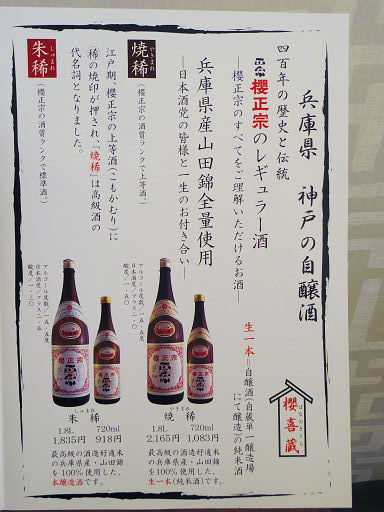 兵庫県 神戸の自醸酒
四百年の歴史と伝統
正宗 櫻正宗のレギュラー酒
―櫻正宗のすべてをご理解いただけるお酒―
兵庫県産山田錦全量使用
―日本酒党の皆様と一生のお付き合い―
焼稀
やきまれ
(櫻正宗の酒質ランクで上等酒。)
江戸期、櫻正宗の上等酒(こもかむり)に
稀の焼印が押され「焼稀」は高級酒の
代名詞となりました。
朱稀
しゅまれ
(櫻正宗の酒質ランクで標準酒。)
生一本=自醸酒(自蔵単一醸造場
にて醸造)の純米酒
櫻喜蔵
はなのよろこぶくら
アルコール度数/一五・五度
日本酒度/プラス二・〇
酸度/一・五〇
櫻正宗
焼稀
やきまれ
1.8L 720ml
2,165円 1,083円
最高級の酒造好適米
の兵庫県産・山田錦
を100%使用した、
生一本(純米酒)です。
アルコール度数/一五・五度
酸度/一・三〇
櫻正宗
朱稀
しゅまれ
1.8L 720ml
1,835円 918円
最高級の酒造好適米
の兵庫県産・山田錦
を100%使用した、
本醸造酒です。